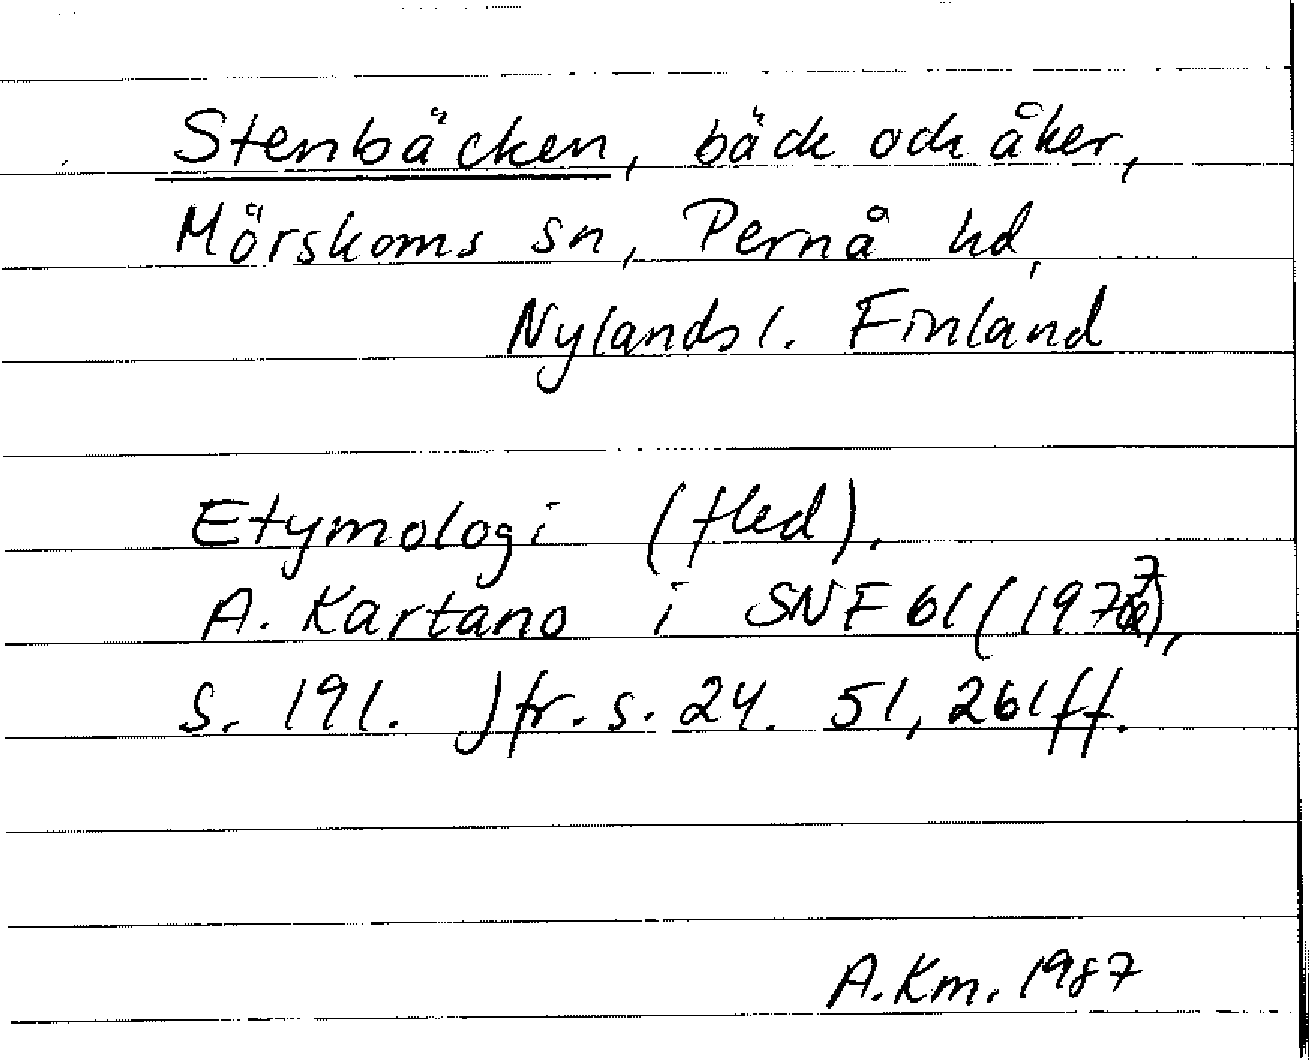 Stenbäcken, bäck och åker,
Mörskoms sn, Pernå hd,
Nylands l. Finland
Etymologi (fled).
A. Kartano i SNF 61 (1977),
s. 191. Jfr. s. 24. 51, 261ff.
A.Km. 1987